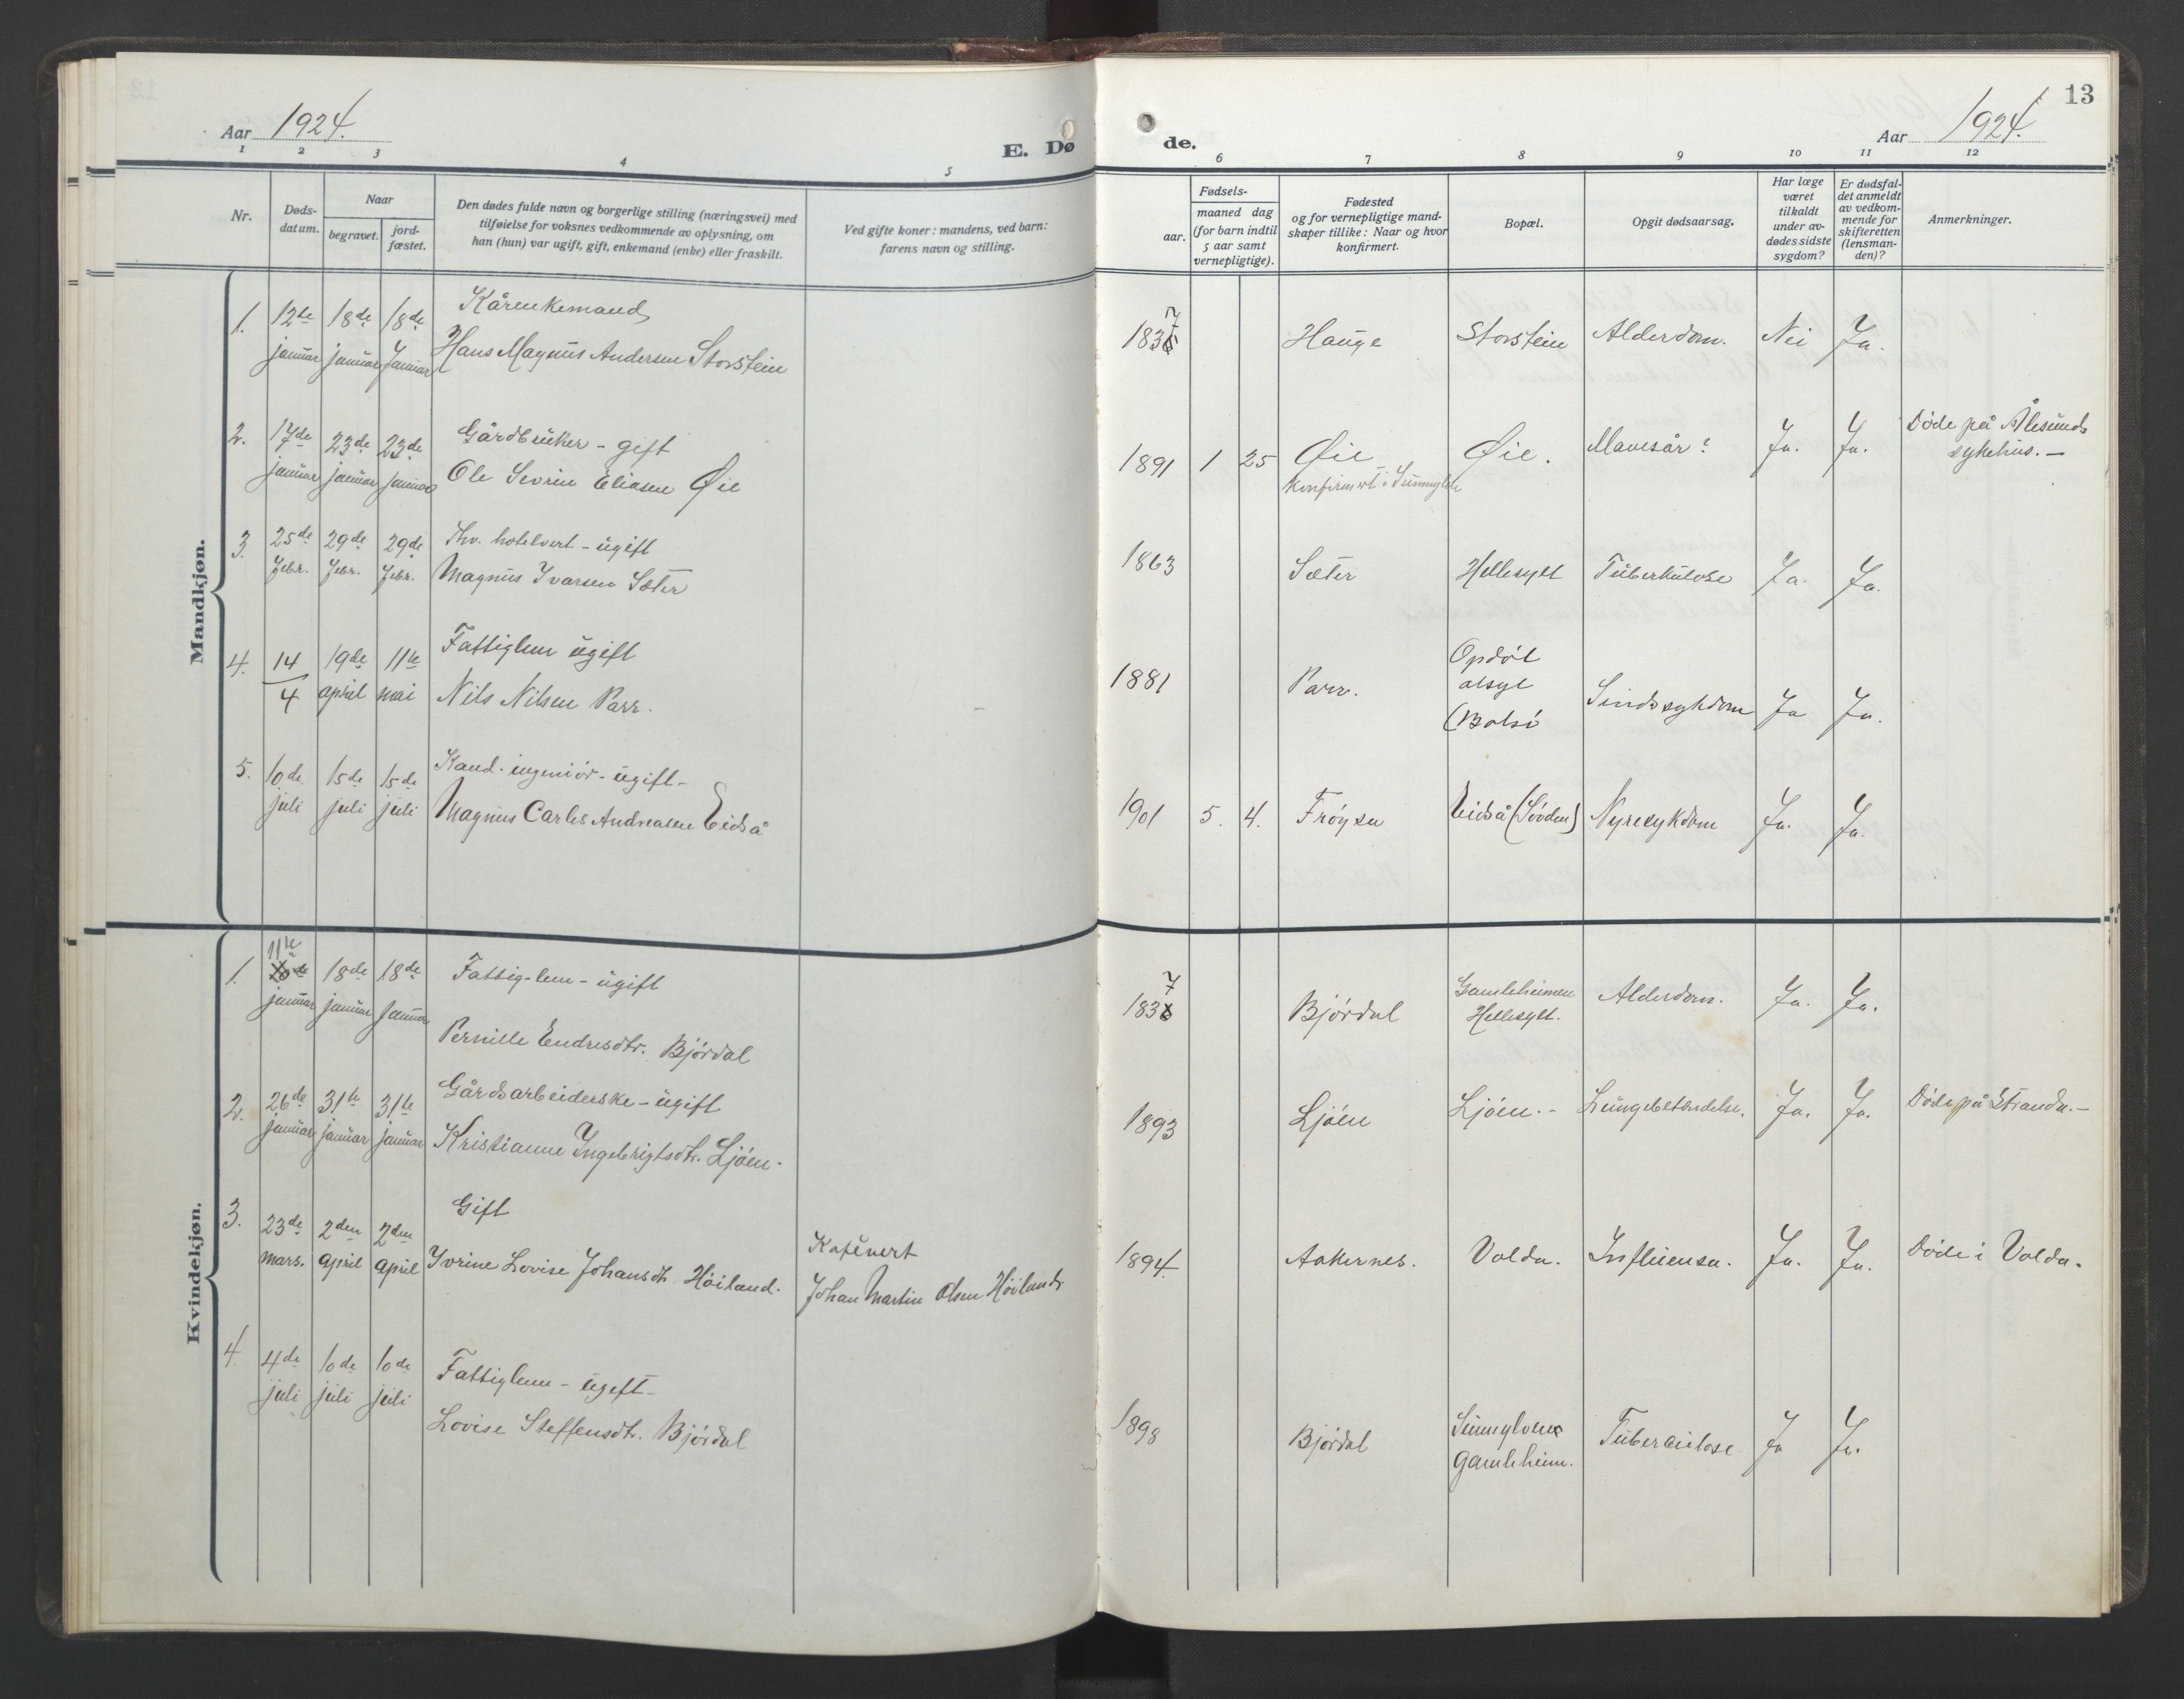 Aar 1924.
E. Dø
1 2 3 4 5
Nr.
Døds-
datum.
Naar
begravet.
jord-
fæstet.
Den dødes fulde navn og borgerlige stilling (næringsvei) med
tilføielse for voksnes vedkommende av oplysning, om
han (hun) var ugift, gift, enkemand (enke) eller fraskilt.
Ved gifte koner: mandens, ved barn:
farens navn og stilling.
Mandkjøn.
1. 12te 18de 18de Kårenkemand
januar januar Januar Hans Magnus Andersen Storstein
2. 17de 23de 23de Gårdbruker - gift
januar januar januar Ole Sevrin Eliasen Øie
3. 25de 29de 29de Fhv. hotelvert - ugift
Febr. Febr. Febr. Magnus Ivarsen Sæter
4. 14 19de 11te Fattiglem ugift
4 april mai Nils Nilsen Parr.
5. 10de 15de 15de Kand. ingeniör - ugift -
juli juli juli Magnus Carles Andreasen Eidså
Kvindekjøn.
11te
1. 18de 18de Fattig-lem - ugift
januar januar Januar
Pernille Endresdtr. Björdal
2. 26de 31te 31te Gårdsarbeiderske - ugift
januar januar januar Kristianne Ingebrigtsdtr. Ljöen.
3. 23de 2den 2den Gift
mars. april april Ivrine Lovise Johansdtr. Höiland.
Kafévert
Johan Martin Olsen Höiland
4. 4de 10de 10de Fattiglem - ugift -
juli juli juli
Lovise Steffensdtr. Björdal
13
de.
Aar 1924.
6 7 8 9 10 11 12
Fødsels-
aar.
maaned dag
(for barn indtil
5 aar samt
vernepligtige).
Fødested
og for vernepligtige mand-
skaper tillike: Naar og hvor
konfirmert.
Bopæl.
Opgit dødsaarsag.
Har læge
været
tilkaldt
under av-
dødes sidste
sygdom?
Er dødsfal-
det anmeldt
av vedkom-
mende for
skifteretten
(lensman-
den)?
Anmerkninger.
7
183 Hauge Storstein Alderdom. Nei Ja.
1891 1 25 Øie Øie. Mavesår? Ja. Ja. Döde på Ålesunds
konfirmert i Sunnylven sykehus. -
1863 Sæter Hellesylt Tuberkulose Ja. Ja.
1881 Parr. Opdöl
alsyl
(Bolsö
Sindssykdom Ja Ja.
1901 5. 4. Fröysa Eidså (Sövden) Nyresykdom Ja. Ja.
7
183 Björdal Gamleheimen Alderdom. Ja. Ja.
Hellesylt.
1893 Ljöen Ljöen. - Lungebetendelse. Ja. Ja. Döde på Stranda. -
1894. Aakernes. Volda. Influensa. Ja. Ja. Döde i Volda.
1898 Björdal Sunnylvens Tuberculose Ja Ja.
Gamleheim.